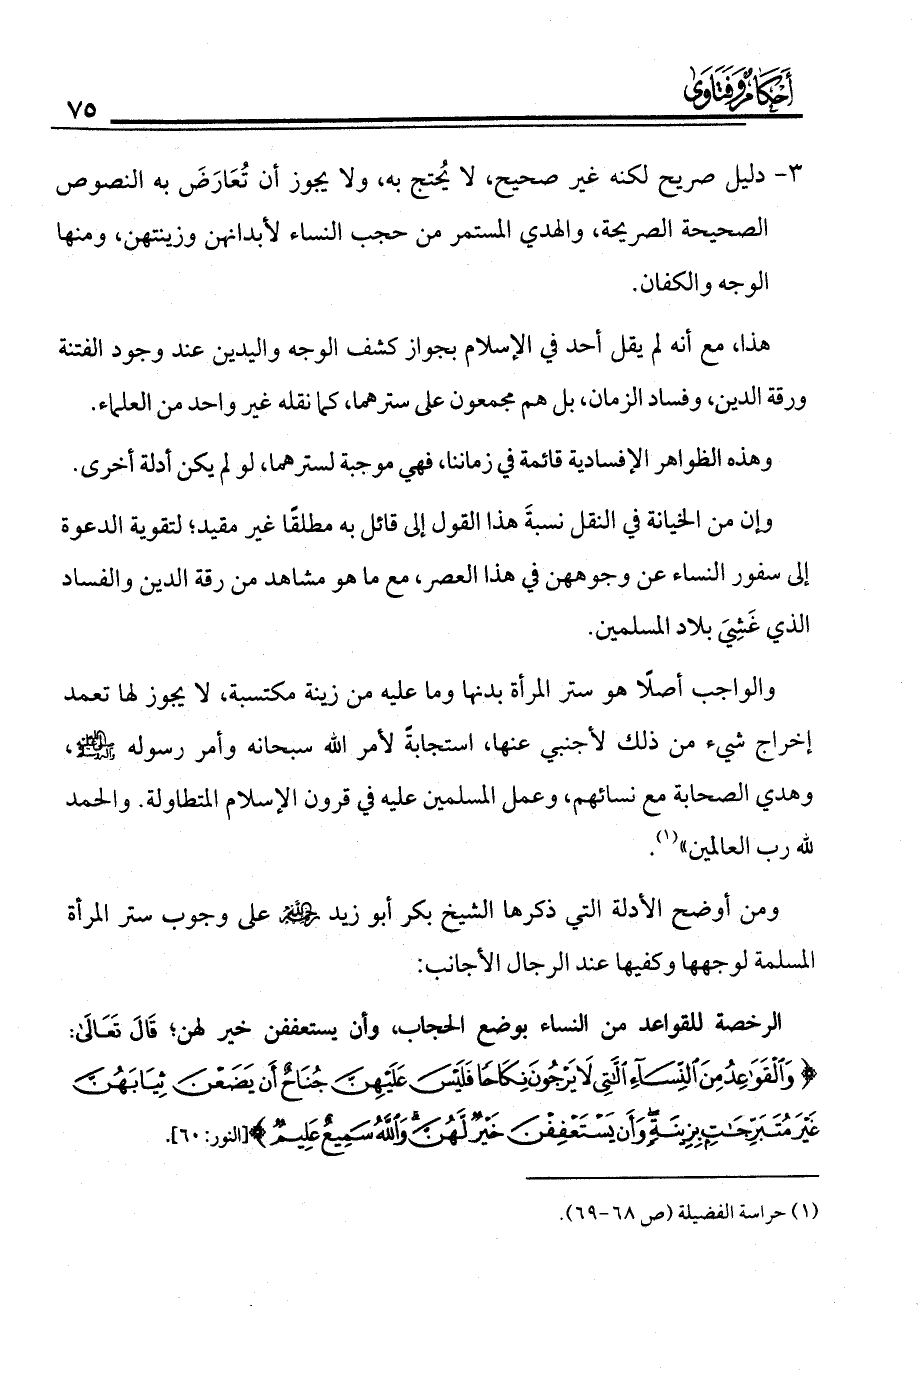 أحكام وفتاوى
٧٥
٣- دليل صريح لكنه غير صحيح، لا يُحتج به، ولا يجوز أن تُعَارَضَ به النصوص
الصحيحة الصريحة، والهدي المستمر من حجب النساء لأبدانهن وزينتهن، ومنها
الوجه والكفان.
هذا، مع أنه لم يقل أحد في الإسلام بجواز كشف الوجه واليدين عند وجود الفتنة
ورقة الدين، وفساد الزمان، بل هم مجمعون على سترهما، كما نقله غير واحد من العلماء.
وهذه الظواهر الإفسادية قائمة في زماننا، فهي موجبة لسترهما، لو لم يكن أدلة أخرى.
وإن من الخيانة في النقل نسبةَ هذا القول إلى قائل به مطلقًا غير مقيد؛ لتقوية الدعوة
إلى سفور النساء عن وجوههن في هذا العصر، مع ما هو مشاهد من رقة الدين والفساد
الذي غَشِيَ بلاد المسلمين.
والواجب أصلًا هو ستر المرأة بدنها وما عليه من زينة مكتسبة، لا يجوز لها تعمد
إخراج شيء من ذلك لأجنبي عنها، استجابةً لأمر الله سبحانه وأمر رسوله ﷺ،
وهدي الصحابة مع نسائهم، وعمل المسلمين عليه في قرون الإسلام المتطاولة. والحمد
لله رب العالمين»(١).
ومن أوضح الأدلة التي ذكرها الشيخ بكر أبو زيد رحمه الله على وجوب ستر المرأة
المسلمة لوجهها وكفيها عند الرجال الأجانب:
الرخصة للقواعد من النساء بوضع الحجاب، وأن يستعففن خير لهن؛ قَالَ تَعَالَىٰ:
﴿ وَٱلْقَوَٰعِدُ مِنَ ٱلنِّسَآءِ ٱلَّٰتِى لَا يَرْجُونَ نِكَاحًا فَلَيْسَ عَلَيْهِنَّ جُنَاحٌ أَن يَضَعْنَ ثِيَابَهُنَّ
غَيْرَ مُتَبَرِّجَٰتٍۭ بِزِينَةٍ ۖ وَأَن يَسْتَعْفِفْنَ خَيْرٌ لَّهُنَّ ۗ وَٱللَّهُ سَمِيعٌ عَلِيمٌ ﴾ [النور: ٦٠].
(١) حراسة الفضيلة (ص ٦٨-٦٩).